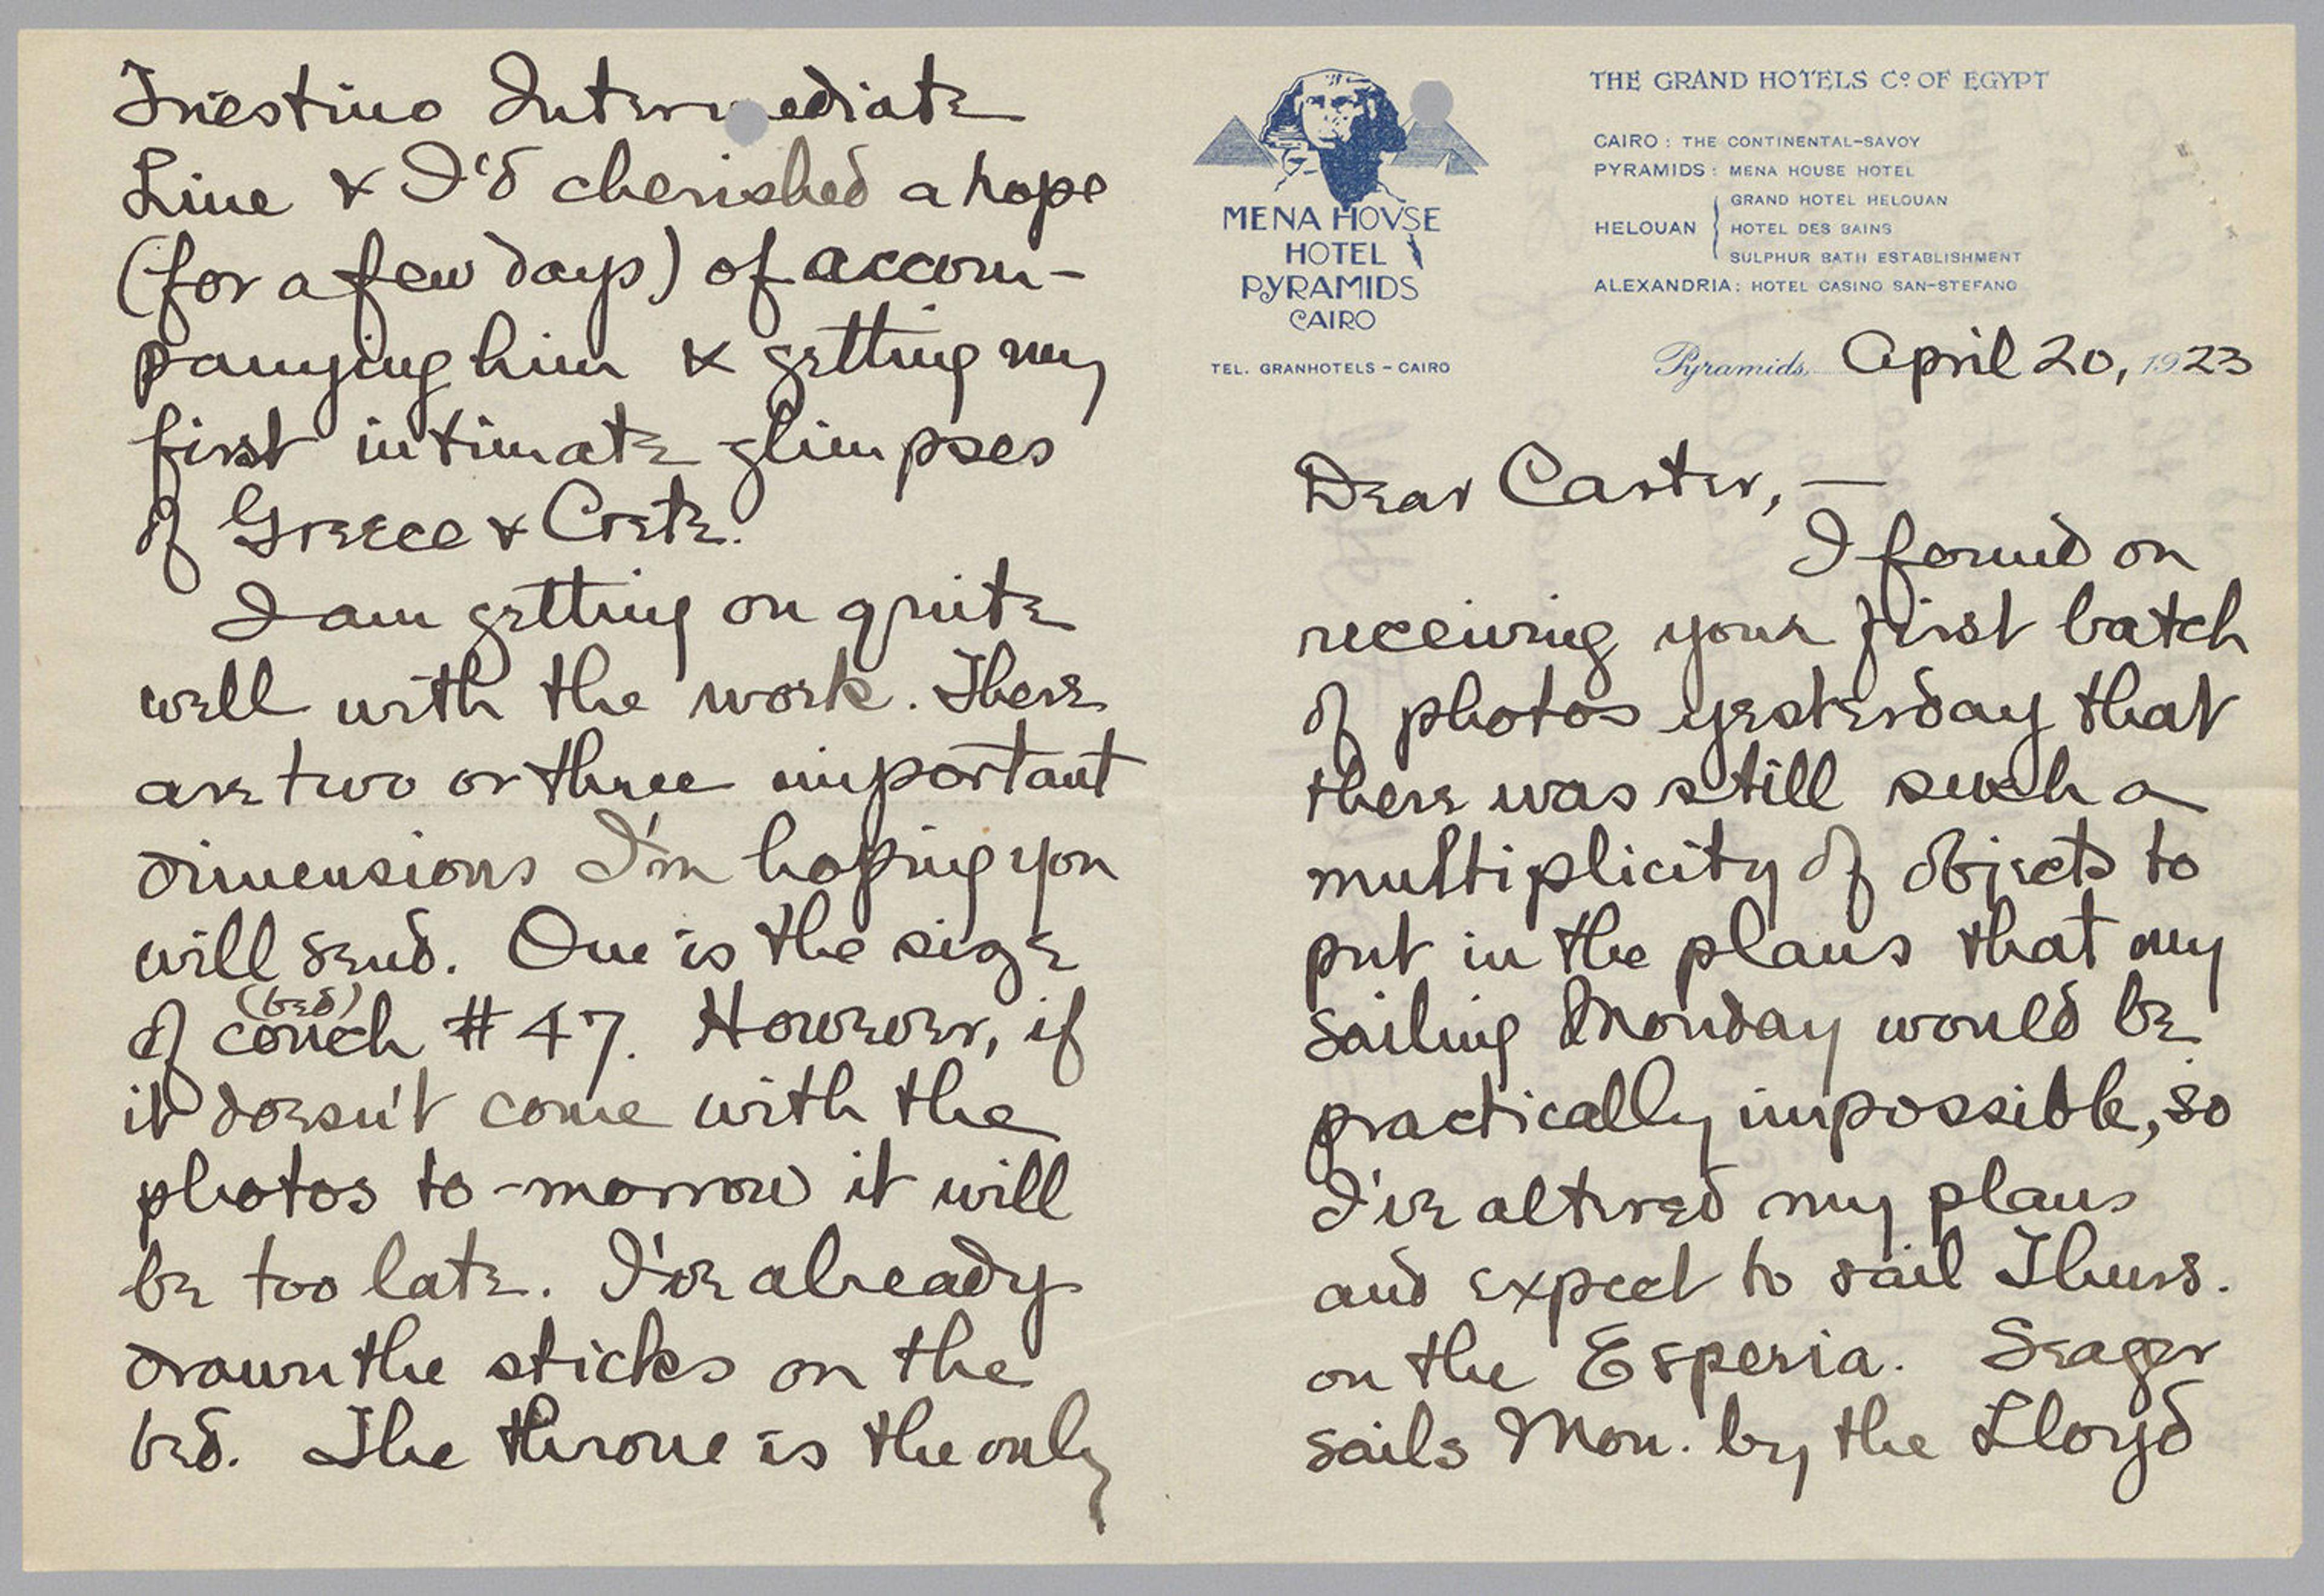 MENA HOVSE
HOTEL
PYRAMIDS
CAIRO
TEL. GRANHOTELS - CAIRO
THE GRAND HOTELS Cº OF EGYPT
CAIRO : THE CONTINENTAL-SAVOY
PYRAMIDS : MENA HOUSE HOTEL
HELOUAN
GRAND HOTEL HELOUAN
HOTEL DES BAINS
SULPHUR BATH ESTABLISHMENT
ALEXANDRIA : HOTEL CASINO SAN-STEFANO
Pyramids, April 20, 1923
Dear Carter, —
I found on
receiving your first batch
of photos yesterday that
there was still such a
multiplicity of objects to
put in the plans that my
sailing Monday would be
practically impossible, so
I've altered my plans
and expect to sail Thurs.
on the Esperia. Seager
sails Mon. by the Lloyd
Triestino Intermediate
Line & I'd cherished a hope
(for a few days) of accom-
panying him & getting my
first intimate glimpses
of Greece & Crete.
I am getting on quite
well with the work. There
are two or three important
dimensions I'm hoping you
will send. One is the size
(bed)
of couch # 47. However, if
it doesn't come with the
photos to-morrow it will
be too late. I've already
drawn the sticks on the
bed. The throne is the only